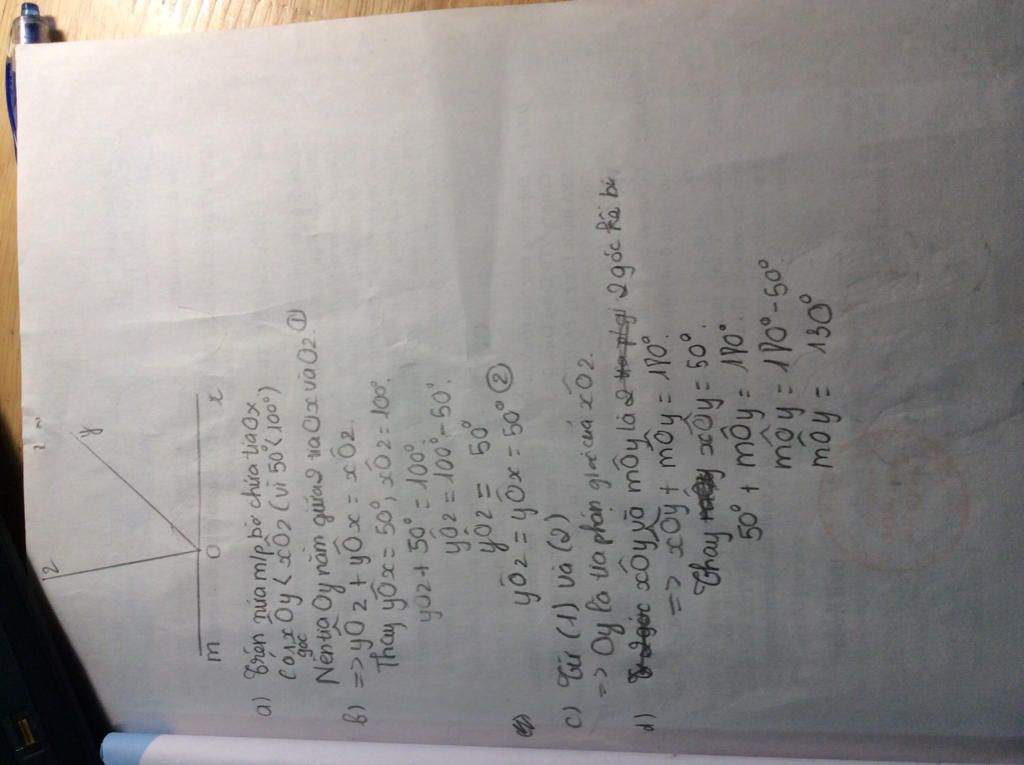 z
y
m
O
x
a) Trên nửa m/p bờ chứa tia Ox
Có góc xOy < xOz (vì 50° < 100°)
Nên tia Oy nằm giữa 2 tia Ox và Oz. ①
b) => yOz + yOx = xOz.
Thay yOx = 50°, xOz = 100°.
yOz + 50° = 100°
yOz = 100° - 50°.
yOz = 50°
yOz = yOx = 50° ②
c) Từ (1) và (2)
=> Oy là tia phân giác của xOz.
d) xOy và mOy là 2 góc kề bù
=> xOy + mOy = 180°.
Thay xOy = 50°.
50° + mOy = 180°.
mOy = 180° - 50°
mOy = 130°